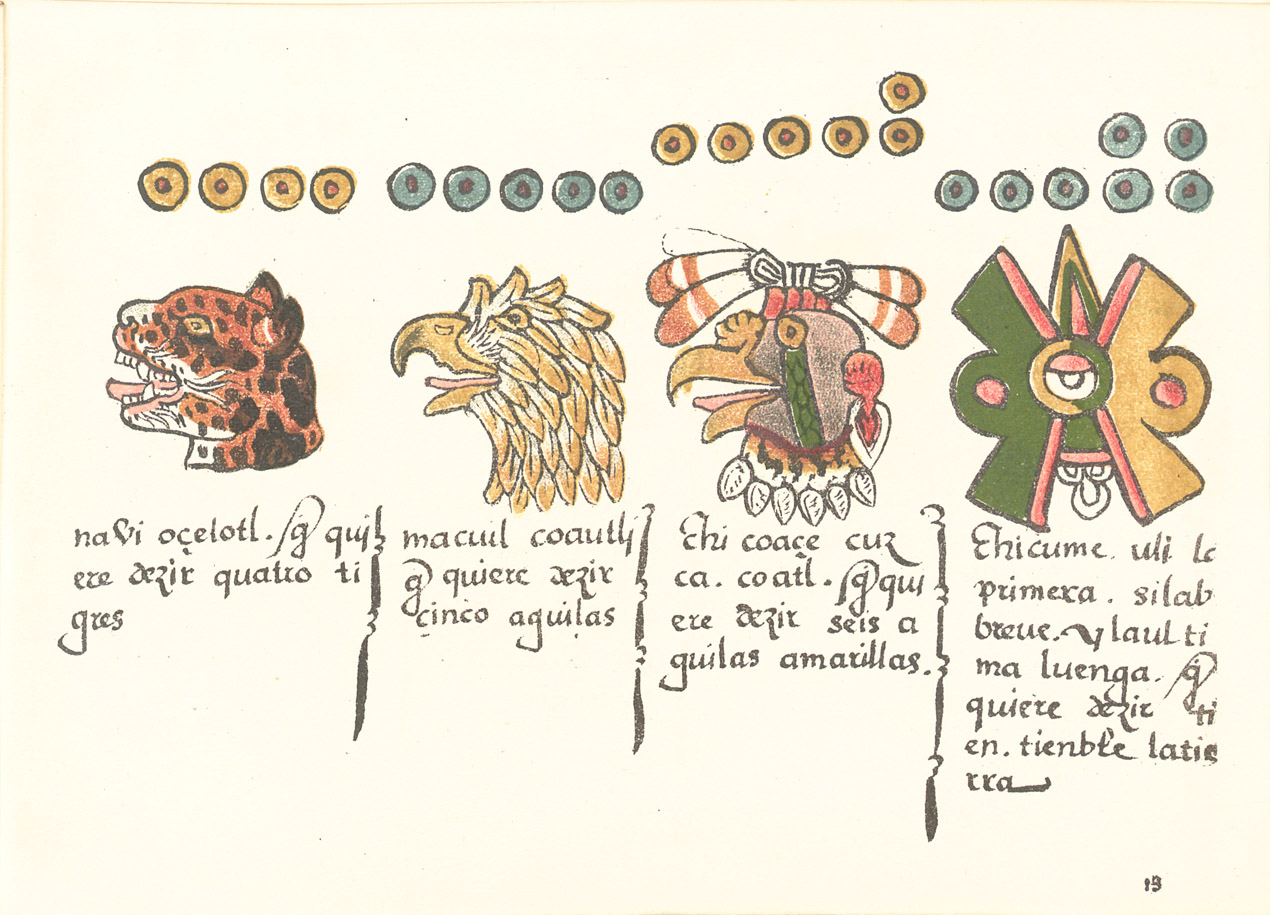 navi oçelotl. /q̃ qui
ere dezir quatro ti
gres
macuil coautli
q̃ quiere dezir
çinco aguilas
Chi coaçe cuz
ca. coatl. /q̃ qui
ere dezir seis a
guilas amarillas.
Chicume. uli lc
primera. silab
breue. y laul ti
ma luenga. /q̃
quiere dezir ti
en. tienble latie
rra
13